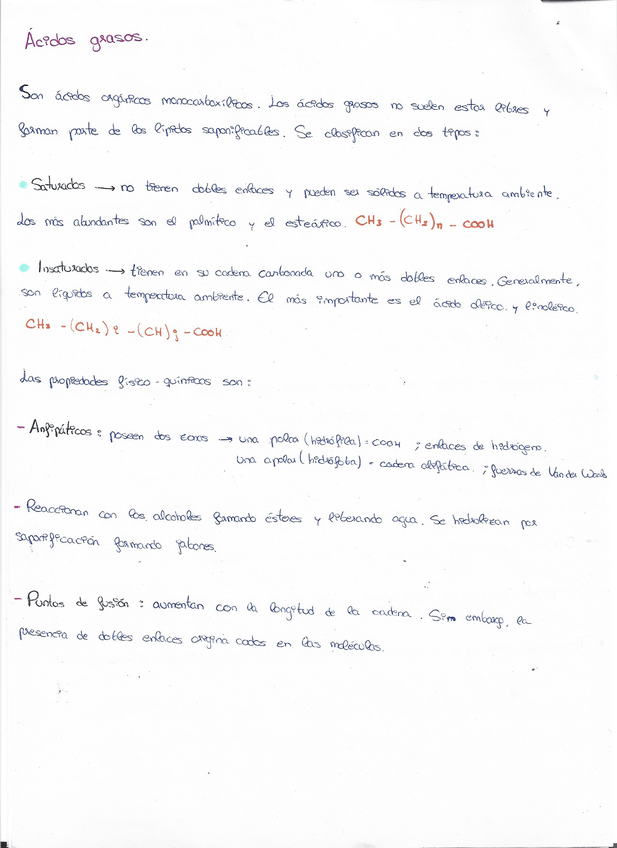 Ácidos grasos.
Son ácidos orgánicos monocarboxílicos. Los ácidos grasos no suelen estar libres y
forman parte de los lípidos saponificables. Se clasifican en dos tipos:
• Saturados → no tienen dobles enlaces y pueden ser sólidos a temperatura ambiente.
Los más abundantes son el palmítico y el esteárico. CH3 - (CH2)n - COOH
• Insaturados → tienen en su cadena carbonada uno o más dobles enlaces. Generalmente,
son líquidos a temperatura ambiente. El más importante es el ácido oleico y linoleico.
CH3 - (CH2)i - (CH)j - COOH
Las propiedades físico-químicas son:
- Anfipáticos: poseen dos zonas → una polar (hidrófila) = COOH ; enlaces de hidrógeno.
una apolar (hidrófoba) = cadena alifática. ; fuerzas de Van der Waals
- Reaccionan con los alcoholes formando ésteres y liberando agua. Se hidrolizan por
saponificación formando jabones.
- Puntos de fusión: aumentan con la longitud de la cadena. Sin embargo, la
presencia de dobles enlaces origina codos en las moléculas.